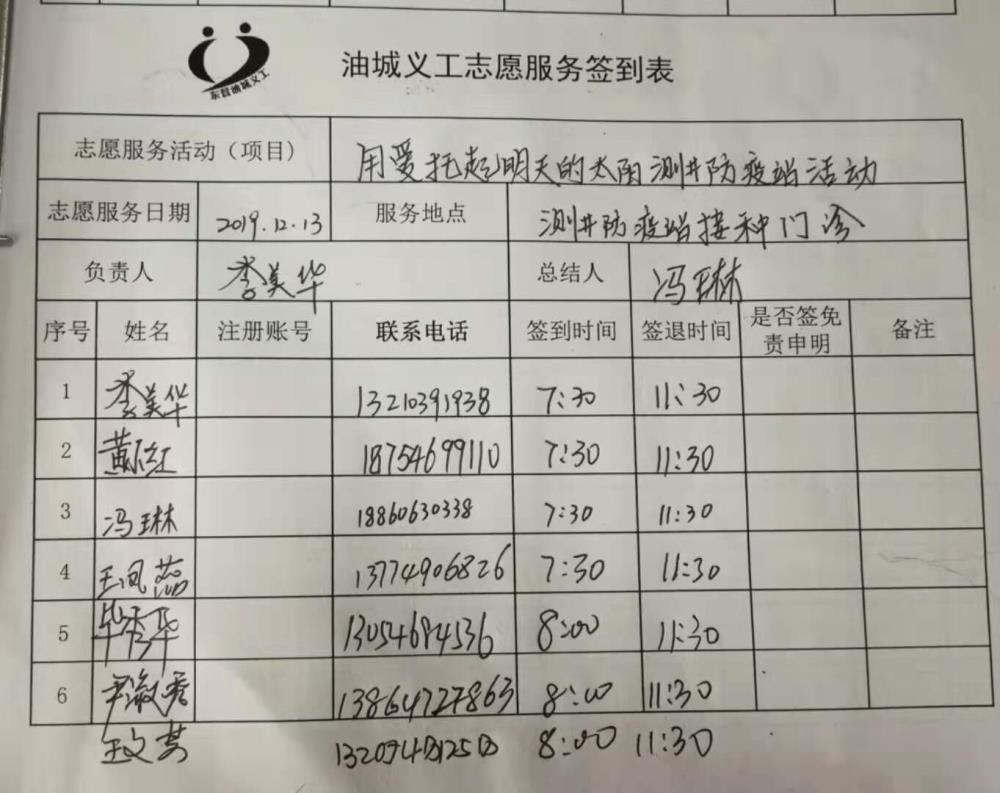 东营油城义工
油城义工志愿服务签到表
志愿服务活动（项目） 用爱托起明天的太阳测井防疫站活动
志愿服务日期 2019.12.13 服务地点 测井防疫站接种门诊
负责人 李美华 总结人 冯琳
序号 姓名 注册账号 联系电话 签到时间 签退时间 是否签免责申明 备注
1 李美华 13210391938 7:30 11:30
2 18754699110 7:30 11:30
3 冯琳 18860630338 7:30 11:30
4 王凤蕊 13774906826 7:30 11:30
5 毕秀华 13054694536 8:00 11:30
6 尹淑秀 13864727863 8:00 11:30
8:00 11:30